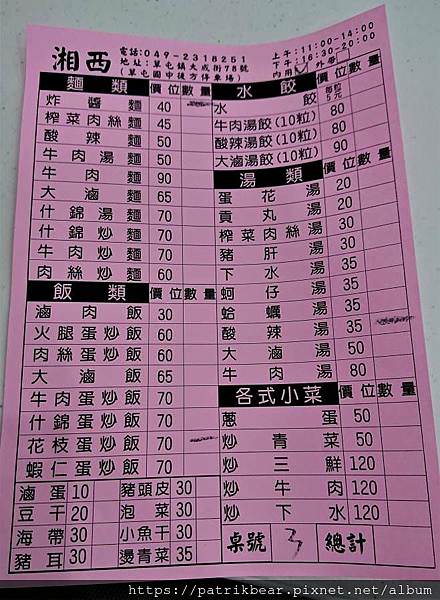 湘西
電話:049-2318251
地址:草屯鎮大成街78號
(草屯國中後方停車場)
上午:11:00-14:00
下午:16:30-20:00
內用 外帶
麵類 價位 數量
炸醬麵 40
榨菜肉絲麵 45
酸辣麵 50
牛肉湯麵 50
牛肉麵 90
大滷麵 65
什錦湯麵 70
什錦炒麵 70
牛肉炒麵 70
肉絲炒麵 60
飯類 價位 數量
滷肉飯 30
火腿蛋炒飯 60
肉絲蛋炒飯 60
大滷飯 65
牛肉蛋炒飯 70
什錦蛋炒飯 70
花枝蛋炒飯 70
蝦仁蛋炒飯 70
滷蛋 10 豬頭皮 30
豆干 20 泡菜 30
海帶 30 小魚干 30
豬耳 30 燙青菜 35
水餃 價位 數量
水餃 每粒5元
牛肉湯餃(10粒) 80
酸辣湯餃(10粒) 80
大滷湯餃(10粒) 90
湯類 價位 數量
蛋花湯 20
貢丸湯 20
榨菜肉絲湯 30
豬肝湯 30
下水湯 35
蚵仔湯 35
蛤蠣湯 35
酸辣湯 35
大滷湯 50
牛肉湯 80
各式小菜 價位 數量
蔥蛋 50
炒青菜 50
炒三鮮 120
炒牛肉 120
炒下水 120
桌號 3 總計
https://patrikbear.pixnet.net/album